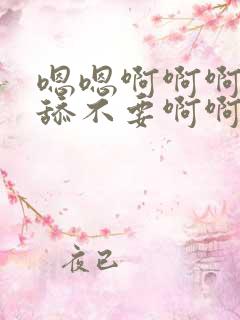 嗯嗯啊啊啊
舔不要啊啊
夜已